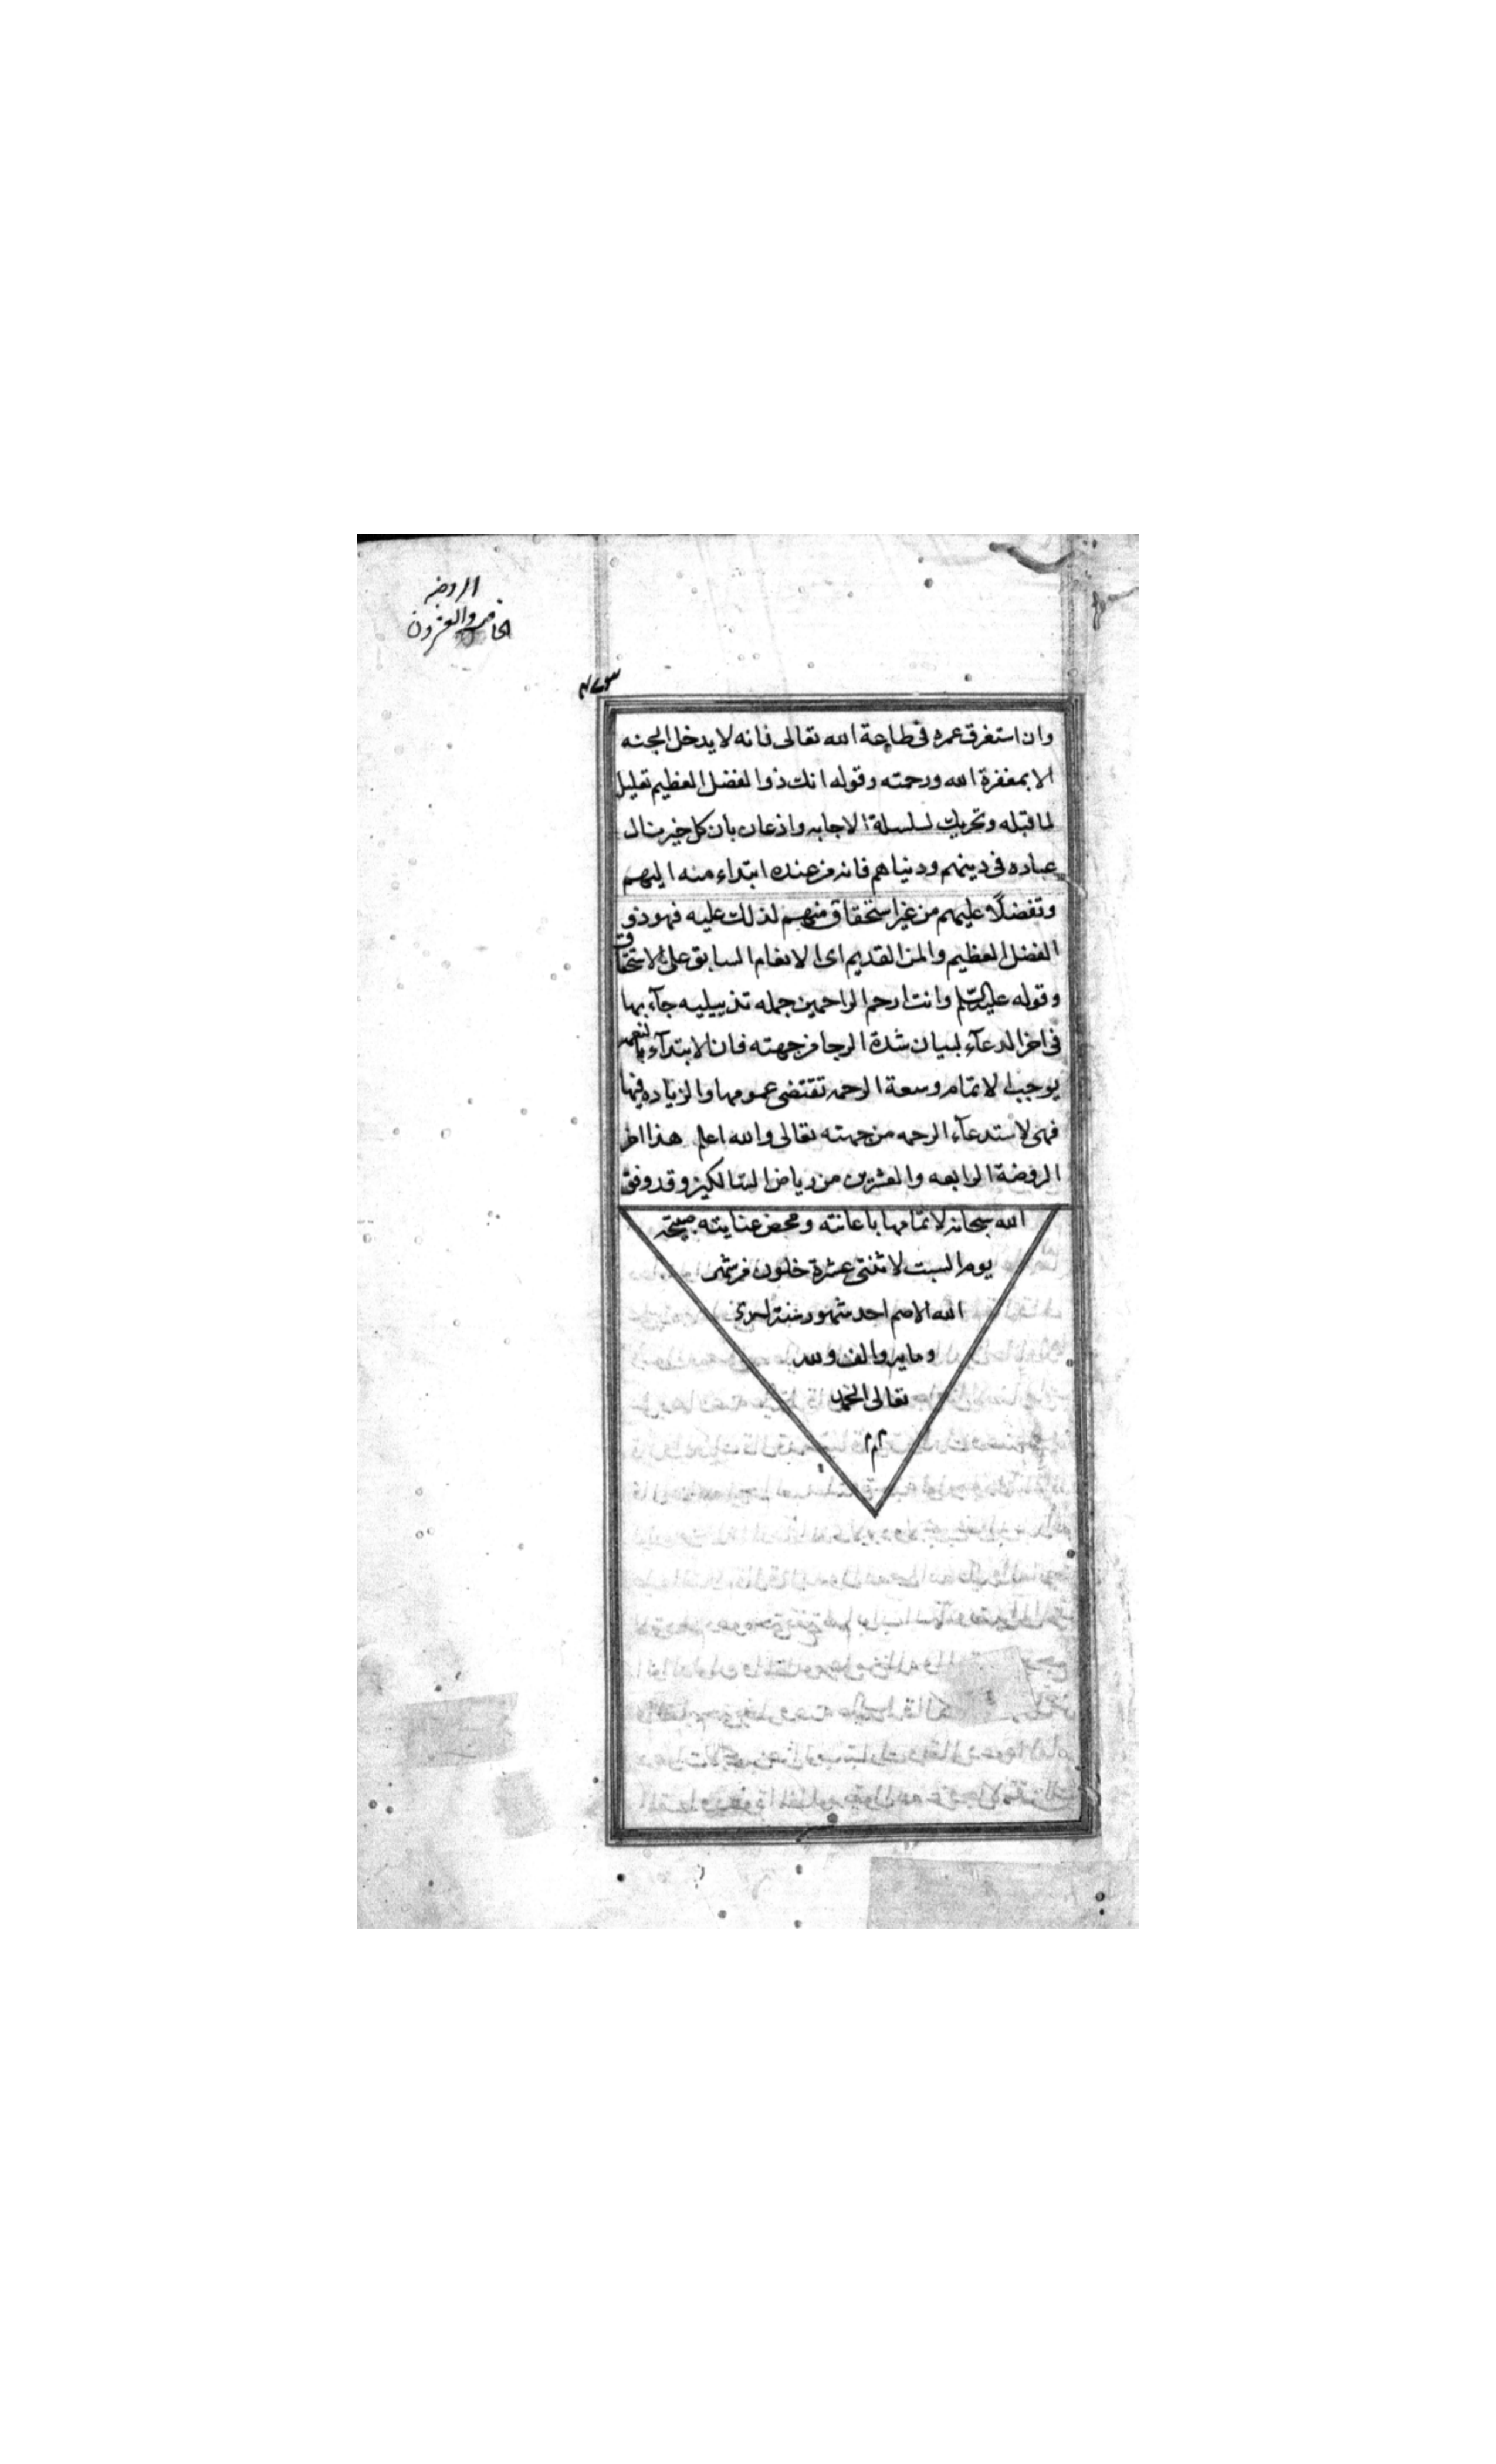 الروضه
الخامس والعشرون
وان استغرق عمره فى طاعة الله تعالى فانه لا يدخل الجنه
الا بمغفرة الله ورحمته وقوله انك ذو الفضل العظيم تعليل
لما قبله وتحريك لسلسلة الاجابه واذعان بان كل خير ينال
عباده فى دينهم ودنياهم فانه من عنده ابتداء منه اليهم
وتفضلًا عليهم من غير استحقاق منهم لذلك عليه فهو ذو
الفضل العظيم والمن القديم اى الانعام السابق على الاستحقاق
وقوله عليه السّلم وانت ارحم الراحمين جمله تذييليه جآء بها
فى اخر الدعآء لبيان شدة الرجا من جهته فان الابتدآء بالنعمه
يوجب الاتمام وسعة الرحمه تقتضى عمومها والزياده فيها
فهى لاستدعآء الرحمه من جهته تعالى والله اعلم هذا اخر
الروضة الرابعه والعشرين من رياض السالكين وقد وفق
الله سبحانه لاتمامها باعانته ومحض عنايته صبيحة
يوم السبت لاثنتى عشرة خلون من شهر
الله الاصم احد شهور سنة احدى
ومايه والف ولله
تعالى الحمد